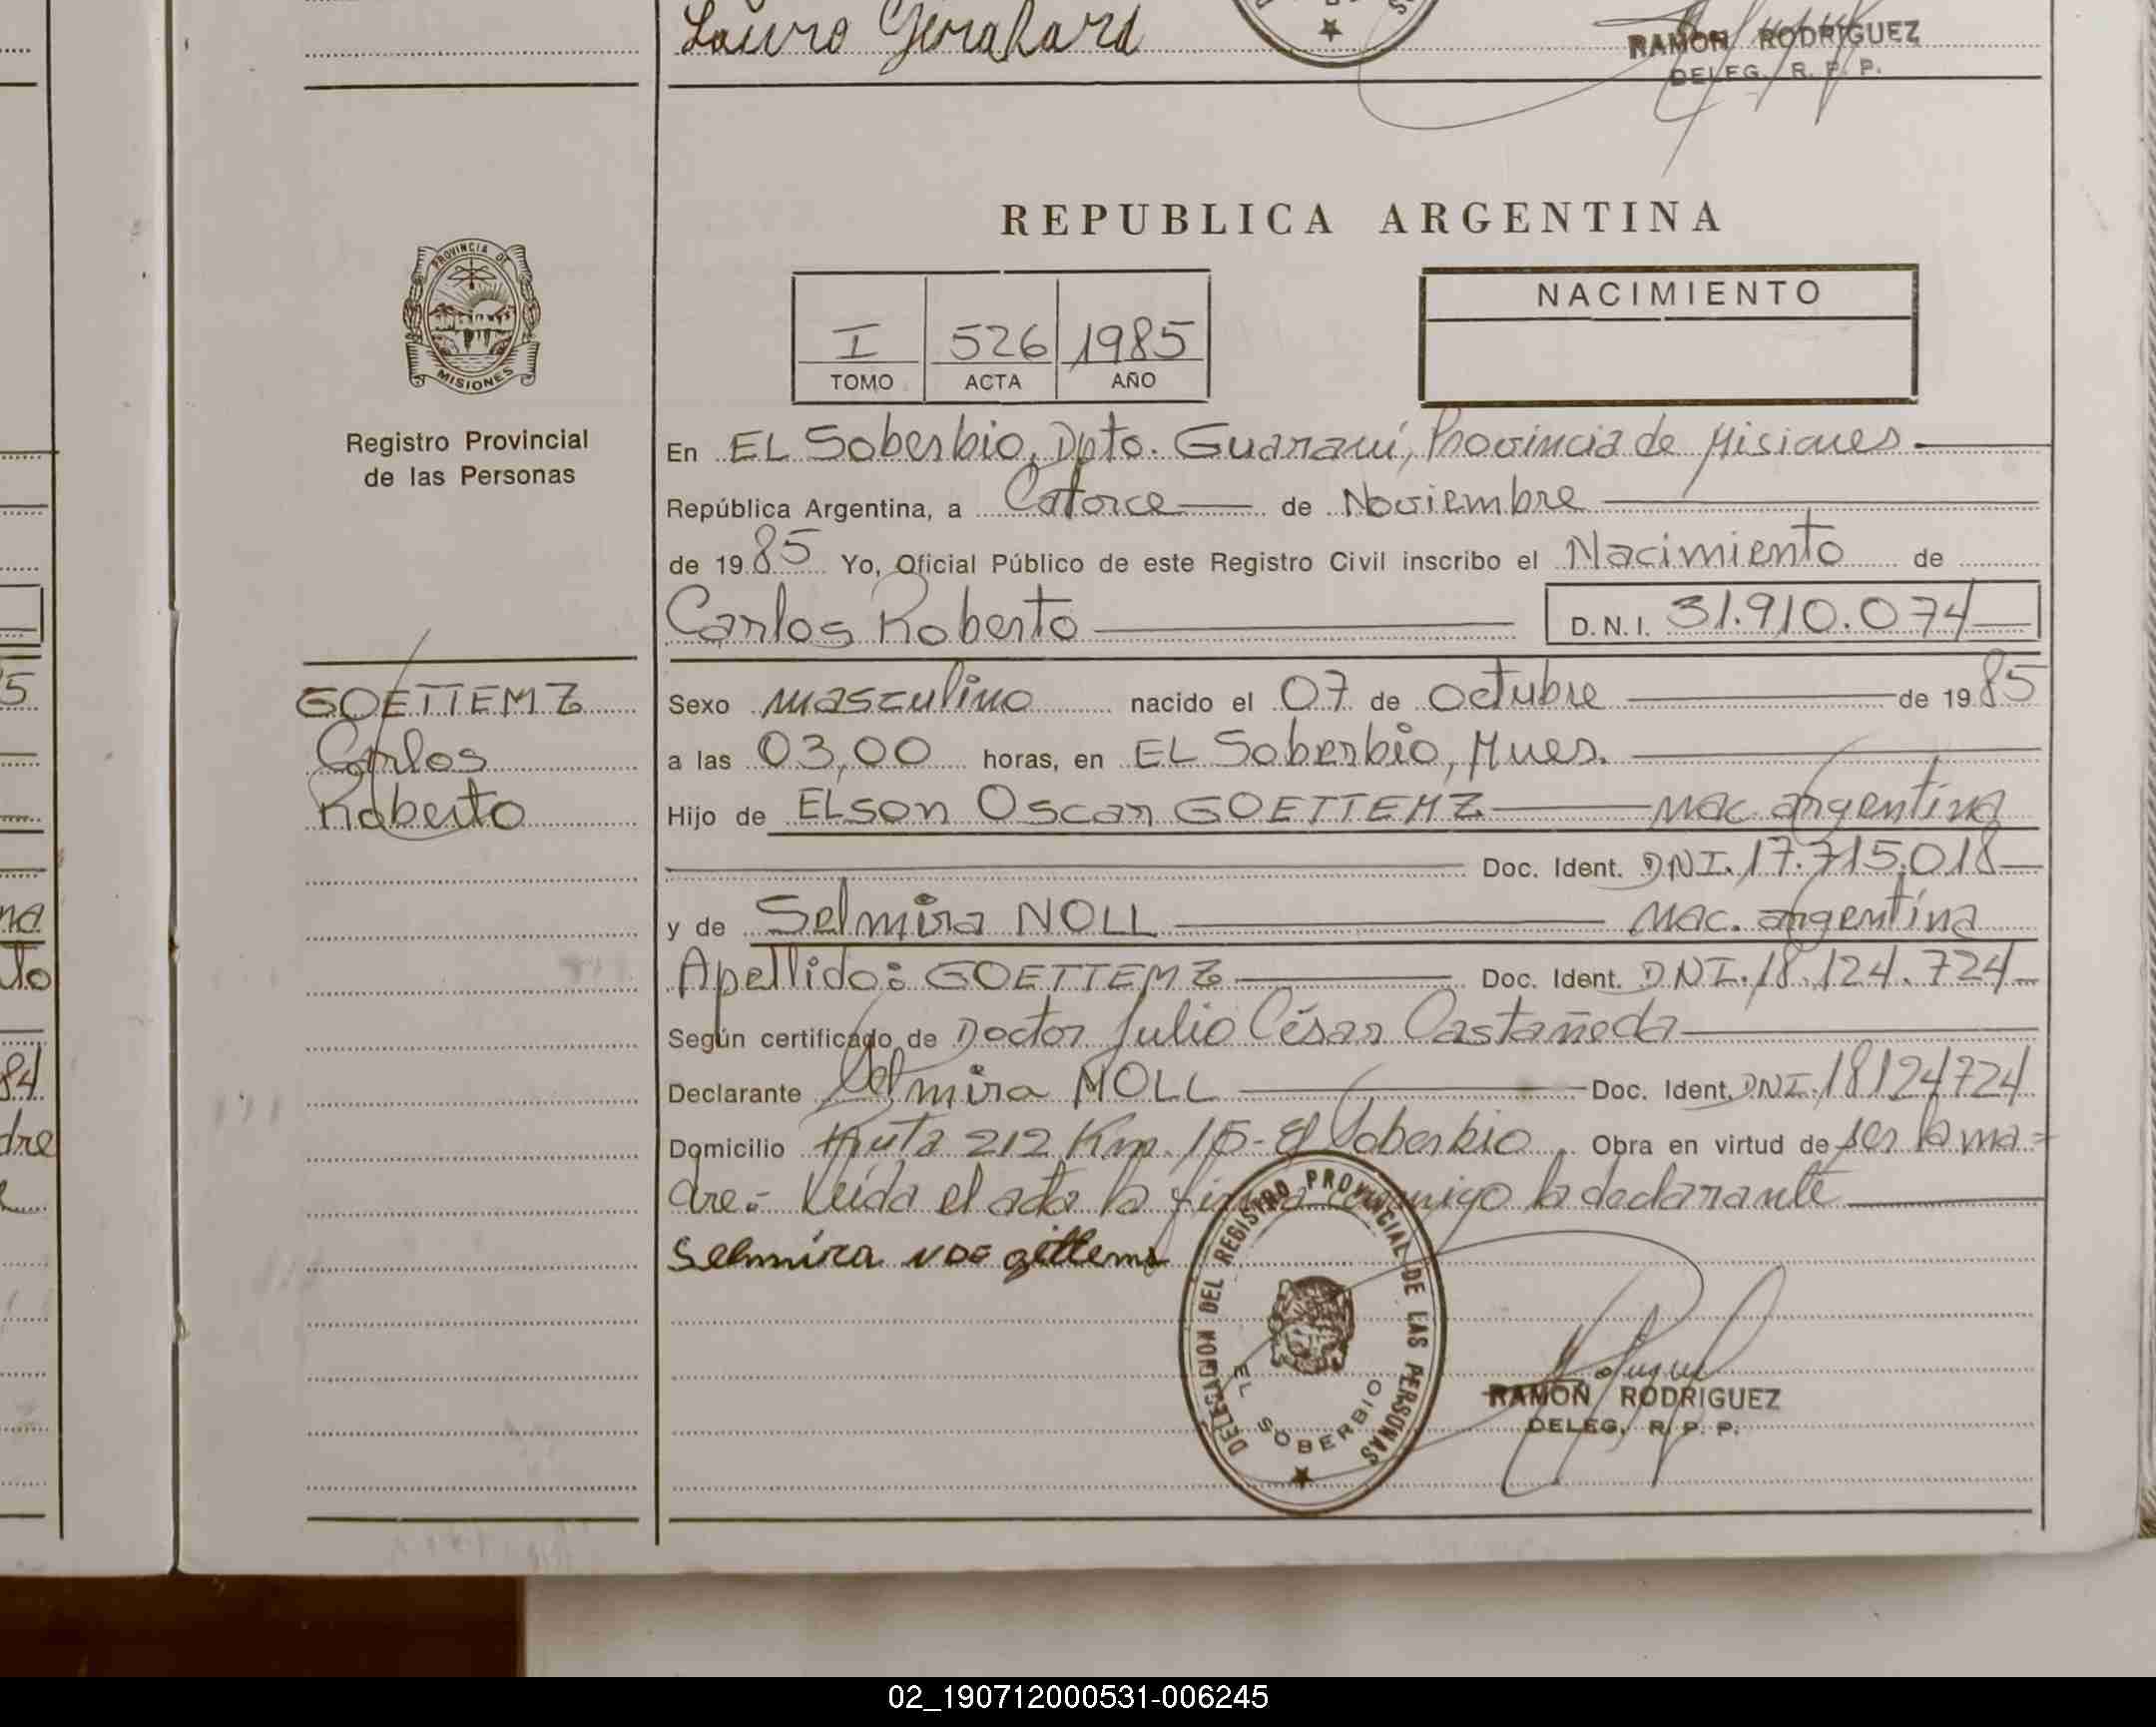 Lauro Gerahard
RAMON RODRIGUEZ
DELEG. R. P. P.
REPUBLICA ARGENTINA
PROVINCIA DE
MISIONES
Registro Provincial
de las Personas
I 526 1985
TOMO ACTA AÑO
NACIMIENTO
En EL Soberbio, Dpto. Guaraní, Provincia de Misiones.
República Argentina, a Catorce de Noviembre
de 1985 Yo, Oficial Público de este Registro Civil inscribo el Nacimiento de
Carlos Roberto D.N.I. 31.910.074
GOETTEMZ
Carlos
Roberto
Sexo masculino nacido el 07 de octubre de 1985
a las 03,00 horas, en EL Soberbio, Mnes.
Hijo de ELSON Oscar GOETTEMZ nac. argentina
Doc. Ident. DNI. 17.715.018
y de Selmira NOLL nac. argentina
Apellido: GOETTEMZ Doc. Ident. DNI. 18.124.724
Según certificado de Doctor Julio César Castañeda
Declarante Selmira NOLL Doc. Ident. DNI. 18124724
Domicilio Ruta 212 Km. 15- El Soberbio Obra en virtud de ser la ma=
dre.- Leída el acta la firma conmigo la declarante
Selmira
DELEGACION DEL REGISTRO PROVINCIAL DE LAS PERSONAS
EL SOBERBIO
RAMON RODRIGUEZ
DELEG. R. P. P.
5
na
to
84
dre
02_190712000531-006245